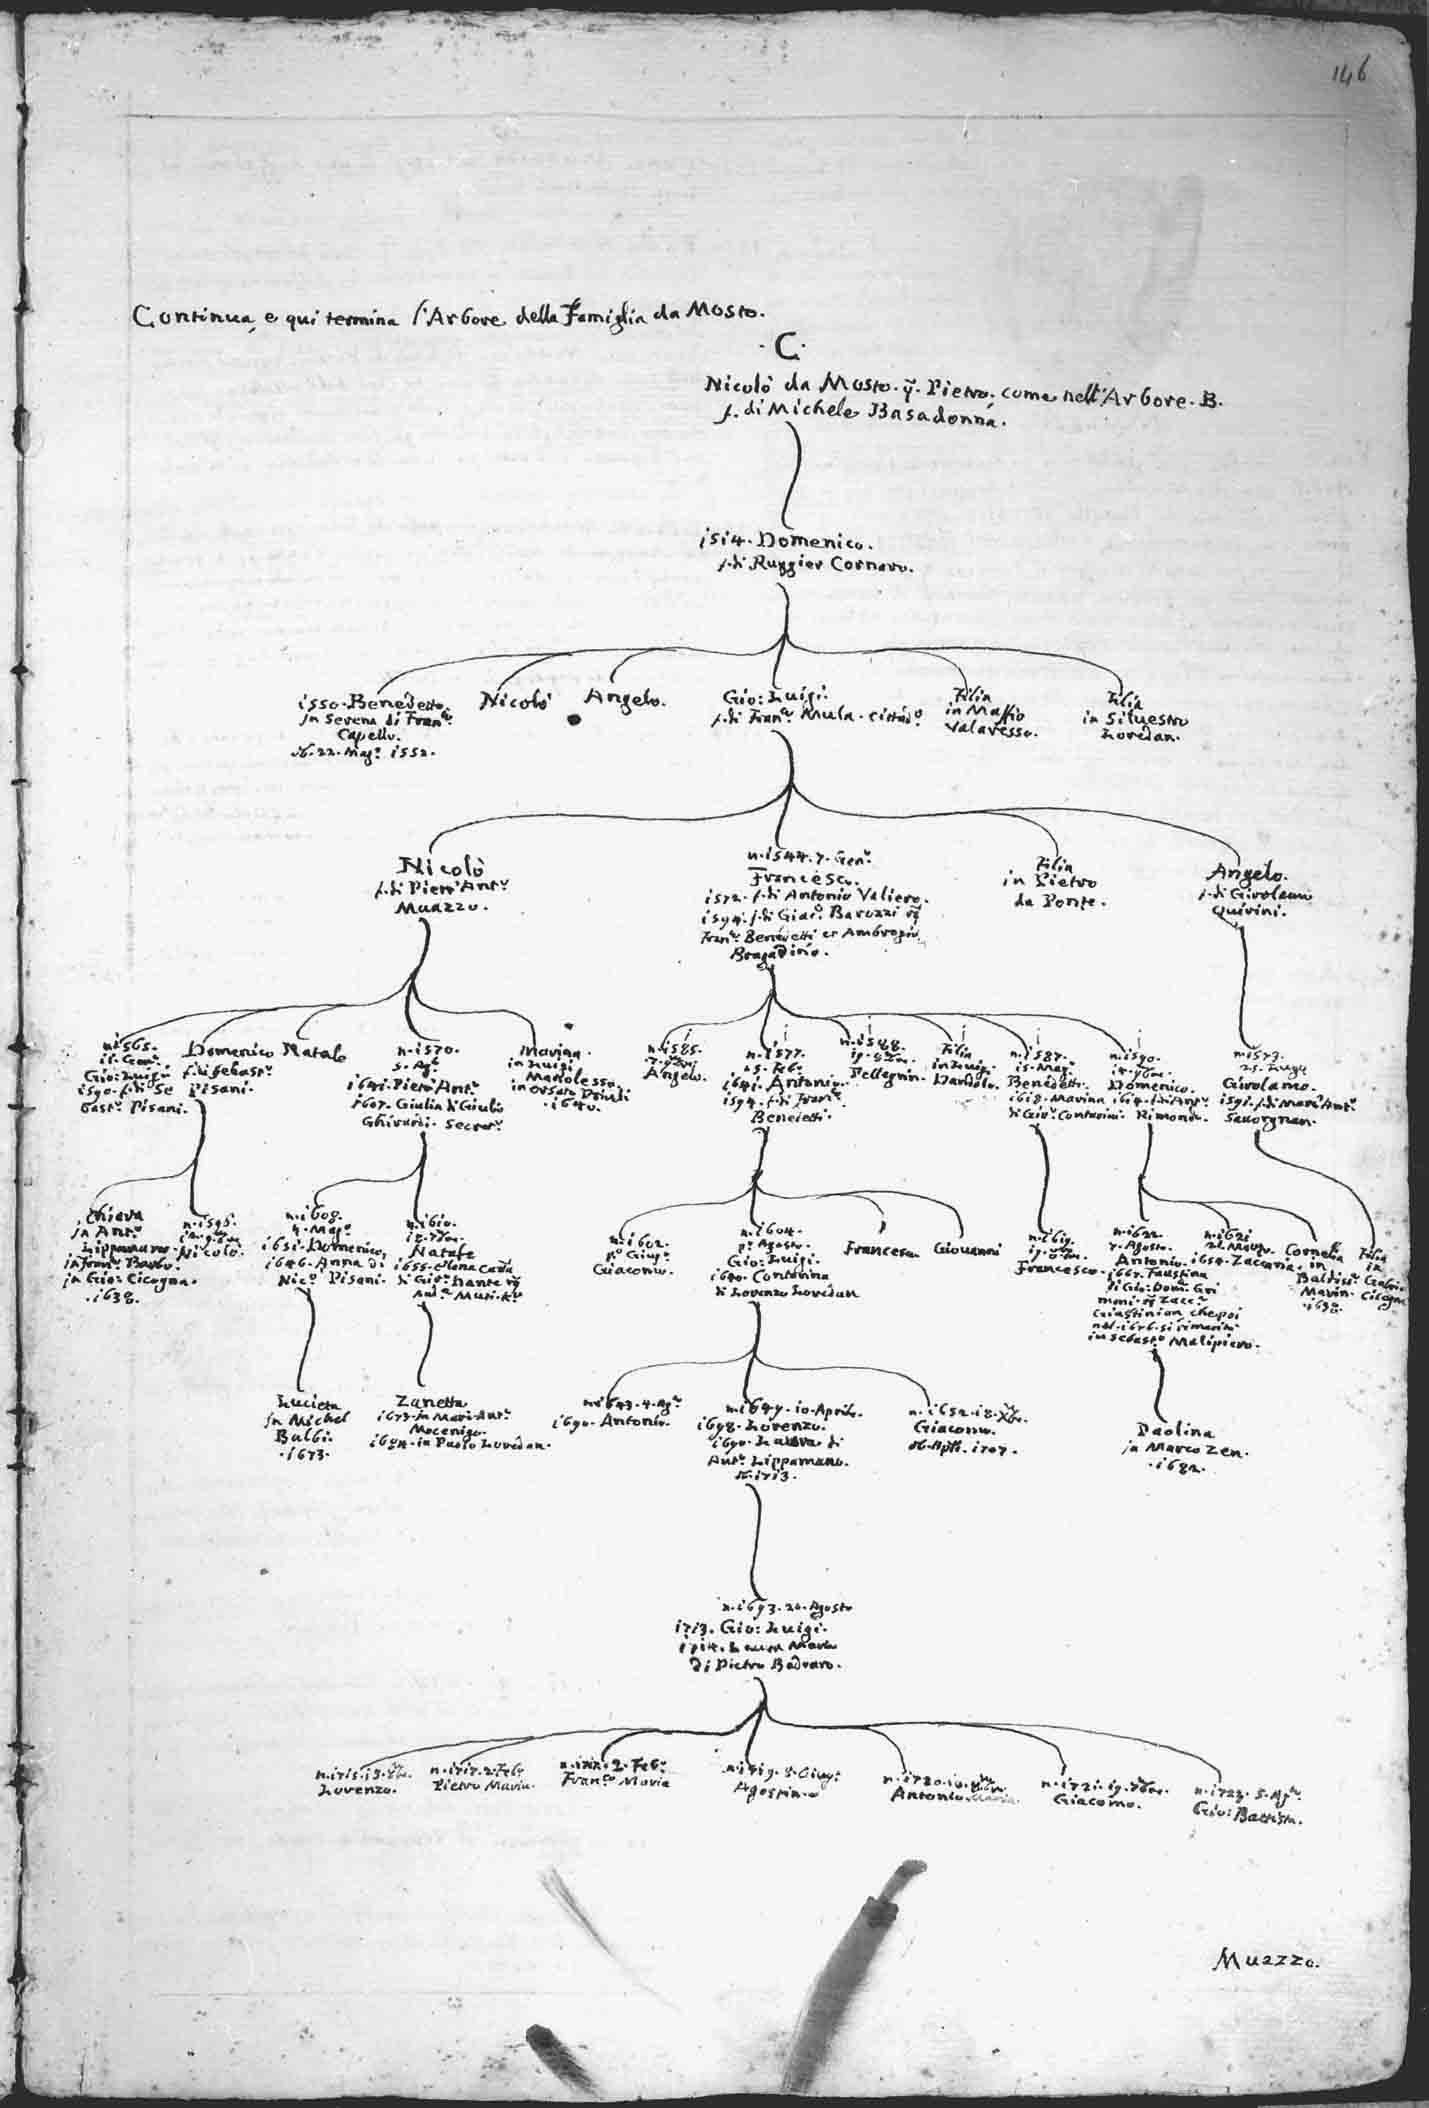 146
Continua, e qui termina l'Arbore della Famiglia da Mosto.
C
Nicolò da Mosto. q. Pietro, come nell'Arbore. B.
f. di Michele Basadonna.
1514. Domenico.
f. di Ruggier Cornaro.
1550. Benedetto.
in Serena di Fran.co
Capello.
ob. 22. Mag.o 1552.
Nicolò
Angelo.
Gio: Luigi.
f. di Fran.co Mula. cittad.o
Filia
in Maffio
Valaresso.
Filia
in Silvestro
Loredan.
Nicolò
f. di Piero Ant.o
Muazzo.
n. 1544. 7. Gen.o
Francesco.
1572. f. di Antonio Valiero.
1594. f. di Giac.o Barozzi
Fran.co Benedetti et Ambrogio
Bragadino.
Filia
in Pietro
da Ponte.
Angelo.
f. di Girolamo
Quirini.
n. 1565.
Gio: Luigi
1590. f. di Se
bast.o Pisani.
Domenico
f. di Sebast.o
Pisani.
Natale
n. 1570.
5. Ag.o
1641. Piero Ant.o
1607. Giulia di Giulio
Ghirardi. Secret.o
Marina.
in Luigi
Mariolesso.
in Orsato
1640.
n. 1585.
Angelo.
n. 1577.
25. Feb.o
1641. Antonio.
1594. f. di Fran.co
Benedetti.
n. 1588.
19. 8bre.
Pellegrin.
Filia
in Luigi
Dandolo.
n. 1587.
15. Mag.
Benedetti.
1618. Marina
di Gio: Contarini
n. 1590.
14. 9bre.
Domenico.
1614. f. di Ant.o
Rimondo.
n. 1573.
25. Lugl
Girolamo.
1591. f. di Marc'Ant.o
Savorgnan.
Chiara
in Ant.o
Lippomano.
in Fran.co Barbo.
in Gio: Cicogna.
1638.
n. 1595.
Nicolò.
n. 1608.
4. Mag.o
1651. Domenico,
1646. Anna di
Nic.o Pisani.
n. 1610.
Natale
1655. Elena Cad.a
di Gio: Dante
And.a Muti. K.r
n. 1602.
p.o Giug.o
Giacomo.
n. 1604.
p.o Agosto.
Gio: Luigi.
1640. Contarina
di Lorenzo Loredan
Francesca
Giovanni
n. 1619.
Francesco.
n. 1622.
7. Agosto.
Antonio.
1667. Faustina
di Gio: Dom.o Gri
mani. Zacc.a
Giustinian, che poi
nel. 1676. si rimaritò
in Sebast.o Malipiero.
n. 1621
22. Marzo.
1654. Zaccaria.
Cornelia
in
Baldiss.r
Marin.
1638.
Filia
in
Gabriel
Cicogna
Lucieta
in Michel
Balbi.
1673.
Zanetta
1673. in Marc'Ant.o
Mocenigo.
1684. in Paolo Loredan.
n. 1643. 4. Ag.o
1690. Antonio.
n. 1649. 10. Aprile.
1698. Lorenzo.
1690. Laura di
Ant.o Lippomano.
ob. 1713.
n. 1652. 18. Xbre.
Giacomo.
ob. Aple. 1707.
Paolina
in Marco Zen.
1682.
n. 1693. 20. Agosto
1713. Gio: Luigi.
1714. Laura Maria
di Pietro Badoaro.
n. 1715.
Lorenzo.
n. 1717. 2. Feb.o
Pietro Maria.
2. Feb.o
Fran.co Maria
n. 1719. 8. Giug.o
Agostino
n. 1720.
Antonio Maria.
n. 1721. 19. 7bre.
Giacomo.
n. 1723. 5. Ag.to
Gio: Battista.
Muazzo.